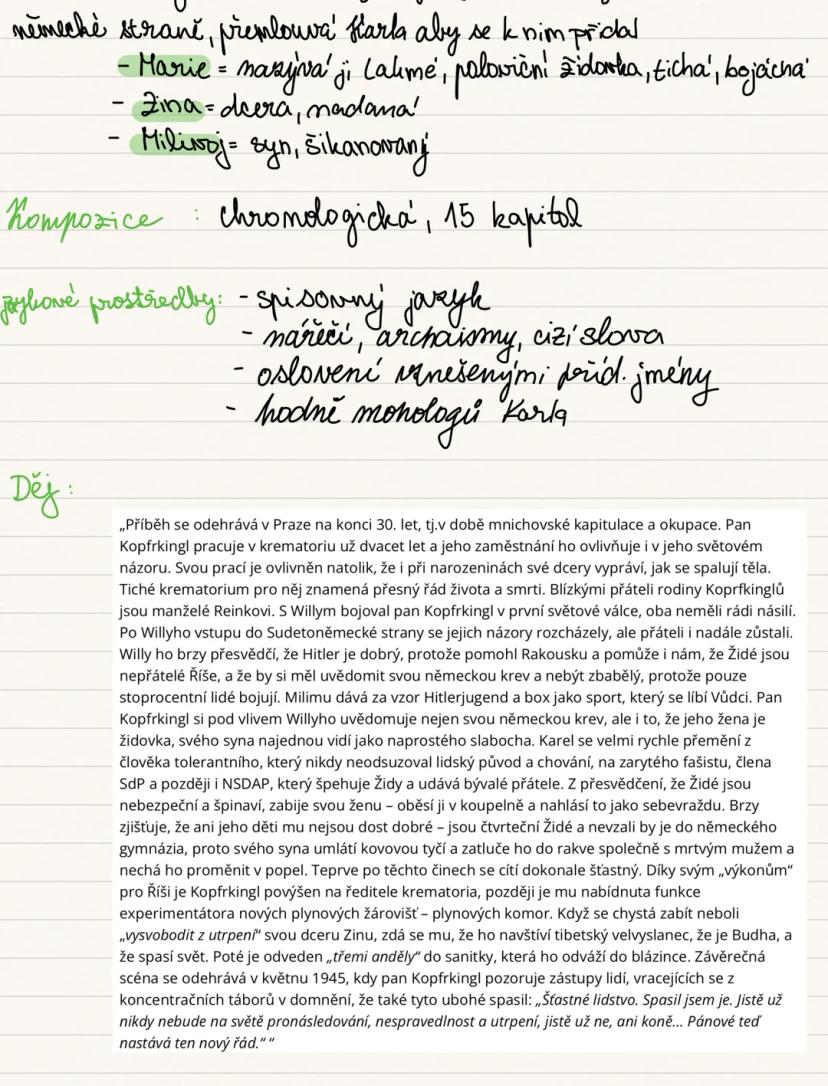 německé straně, přemlouvá Karla aby se k nim přidal
- Marie = nazývá ji Lakmé, poloviční židovka, tichá, bojácná
- Zina = dcera, nadaná
- Milivoj = syn, šikanovaný
Kompozice : chronologická, 15 kapitol
jazykové prostředky: - spisovný jazyk
- nářečí, archaismy, cizí slova
- oslovení vznešenými příd. jmény
- hodně monologů Karla
Děj :
„Příběh se odehrává v Praze na konci 30. let, tj.v době mnichovské kapitulace a okupace. Pan
Kopfrkingl pracuje v krematoriu už dvacet let a jeho zaměstnání ho ovlivňuje i v jeho světovém
názoru. Svou prací je ovlivněn natolik, že i při narozeninách své dcery vypráví, jak se spalují těla.
Tiché krematorium pro něj znamená přesný řád života a smrti. Blízkými přáteli rodiny Koprfkinglů
jsou manželé Reinkovi. S Willym bojoval pan Kopfrkingl v první světové válce, oba neměli rádi násilí.
Po Willyho vstupu do Sudetoněmecké strany se jejich názory rozcházely, ale přáteli i nadále zůstali.
Willy ho brzy přesvědčí, že Hitler je dobrý, protože pomohl Rakousku a pomůže i nám, že Židé jsou
nepřátelé Říše, a že by si měl uvědomit svou německou krev a nebýt zbabělý, protože pouze
stoprocentní lidé bojují. Milimu dává za vzor Hitlerjugend a box jako sport, který se líbí Vůdci. Pan
Kopfrkingl si pod vlivem Willyho uvědomuje nejen svou německou krev, ale i to, že jeho žena je
židovka, svého syna najednou vidí jako naprostého slabocha. Karel se velmi rychle přemění z
člověka tolerantního, který nikdy neodsuzoval lidský původ a chování, na zarytého fašistu, člena
SdP a později i NSDAP, který špehuje Židy a udává bývalé přátele. Z přesvědčení, že Židé jsou
nebezpeční a špinaví, zabije svou ženu – oběsí ji v koupelně a nahlásí to jako sebevraždu. Brzy
zjišťuje, že ani jeho děti mu nejsou dost dobré – jsou čtvrteční Židé a nevzali by je do německého
gymnázia, proto svého syna umlátí kovovou tyčí a zatluče ho do rakve společně s mrtvým mužem a
nechá ho proměnit v popel. Teprve po těchto činech se cítí dokonale šťastný. Díky svým „výkonům“
pro Říši je Kopfrkingl povýšen na ředitele krematoria, později je mu nabídnuta funkce
experimentátora nových plynových žárovišť – plynových komor. Když se chystá zabít neboli
„vysvobodit z utrpení“ svou dceru Zinu, zdá se mu, že ho navštíví tibetský velvyslanec, že je Budha, a
že spasí svět. Poté je odveden „třemi anděly“ do sanitky, která ho odváží do blázince. Závěrečná
scéna se odehrává v květnu 1945, kdy pan Kopfrkingl pozoruje zástupy lidí, vracejících se z
koncentračních táborů v domnění, že také tyto ubohé spasil: „Šťastné lidstvo. Spasil jsem je. Jistě už
nikdy nebude na světě pronásledování, nespravedlnost a utrpení, jistě už ne, ani koně... Pánové teď
nastává ten nový řád.“ “